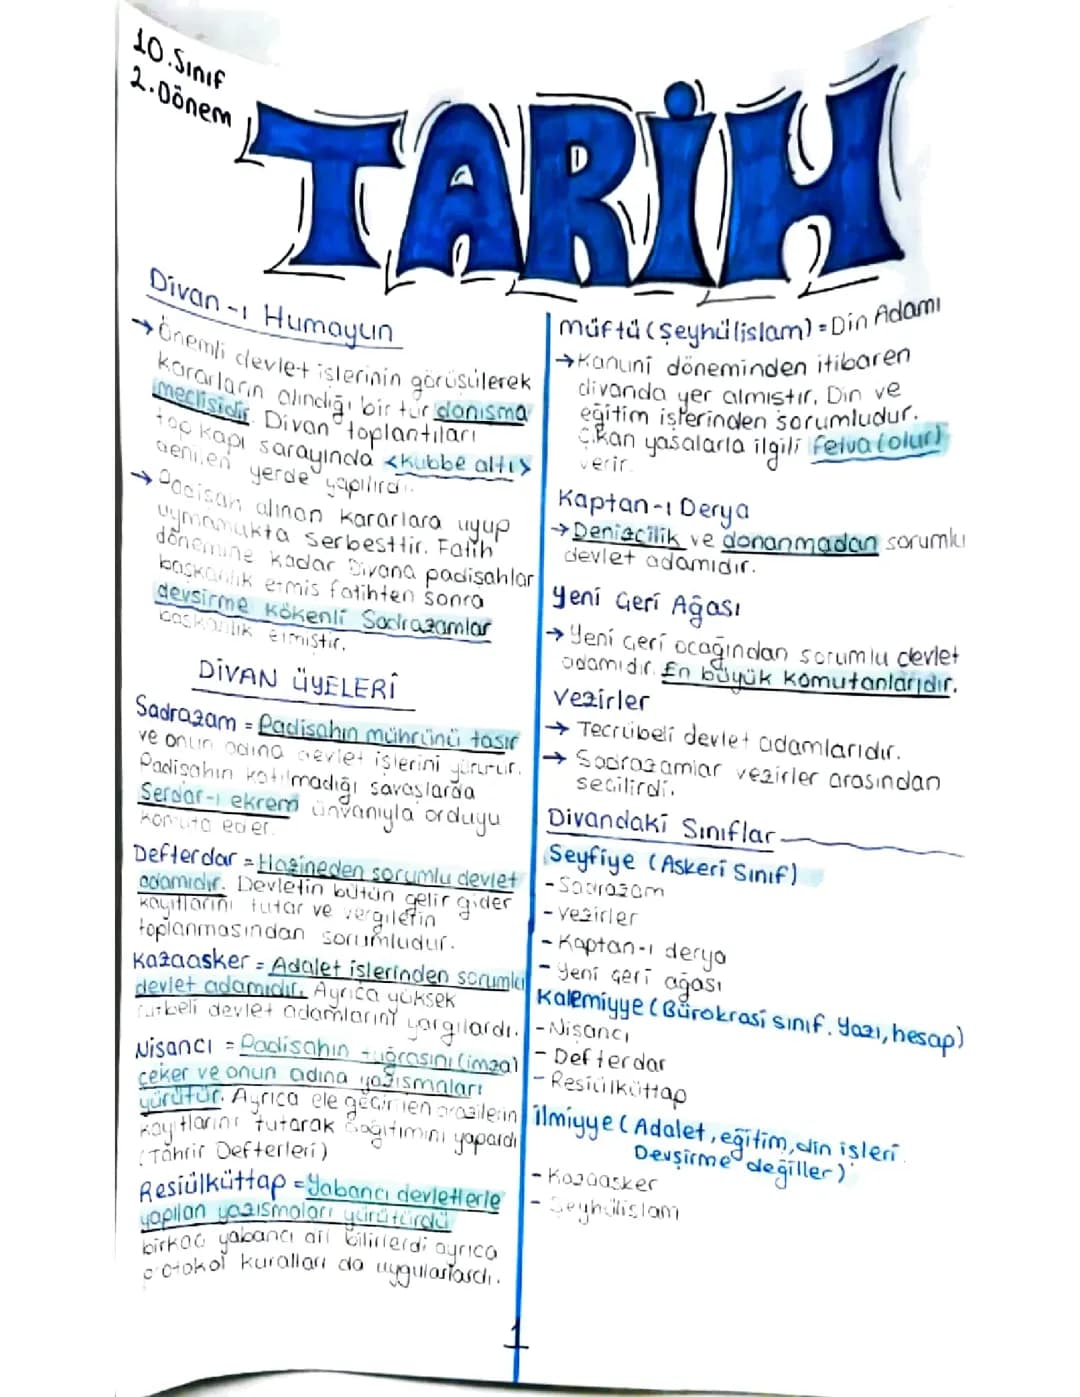 10.Sınıf
2.Dönem
TARİH
Divan-ı Humayun
→ Önemli devlet işlerinin görüşülerek
kararların alındığı bir tür danışma
meclisidir. Divan toplantıları
top kapı sarayında <kubbe altı>
denilen yerde yapılırdı.
→ Padişah alınan kararlara uyup
uymamakta serbesttir. Fatih
dönemine kadar Divana padişahlar
başkanlık etmiş fatihten sonra
devşirme kökenli Sadrazamlar
başkanlık etmiştir.
DİVAN ÜYELERİ
Sadrazam = Padişahın mührünü taşır
ve onun adına devlet işlerini yürütür.
Padişahın katılmadığı savaşlarda
Serdar-ı ekrem ünvanıyla orduyu
komuta eder.
Defterdar = Hazineden sorumlu devlet
adamıdır. Devletin bütün gelir gider
kayıtlarını tutar ve vergilerin
toplanmasından sorumludur.
Kazaasker = Adalet işlerinden sorumlu
devlet adamıdır. Ayrıca yüksek
rütbeli devlet adamlarını yargılardı.
Nişancı = Padişahın tuğrasını (imza)
çeker ve onun adına yazışmaları
yürütür. Ayrıca ele geçirilen arazilerin
kayıtlarını tutarak dağıtımını yapardı
(Tahrir Defterleri)
Resiülküttap = Yabancı devletlerle
yapılan yazışmaları yürütürdü
birkaç yabancı dil bilirlerdi ayrıca
protokol kuralları da uygularlardı.
müftü (Şeyhülislam) = Din Adamı
→ Kanuni döneminden itibaren
divanda yer almıştır. Din ve
eğitim işlerinden sorumludur.
Çıkan yasalarla ilgili fetva (olur)
verir.
Kaptan-ı Derya
→ Denizcilik ve donanmadan sorumlu
devlet adamıdır.
Yeni Çeri Ağası
→ Yeni çeri ocağından sorumlu devlet
adamıdır. En büyük komutanlarıdır.
Vezirler
→ Tecrübeli devlet adamlarıdır.
→ Sadrazamlar vezirler arasından
seçilirdi.
Divandaki Sınıflar
Seyfiye (Askeri Sınıf)
- Sadrazam
- vezirler
- Kaptan-ı derya
- Yeni çeri ağası
Kalemiyye (Bürokrasi sınıf. Yazı, hesap)
- Nişancı
- Defterdar
- Resiülküttap
İlmiyye (Adalet, eğitim, din işleri
Devşirme değiller)
- Kazaasker
- Şeyhülislam
1